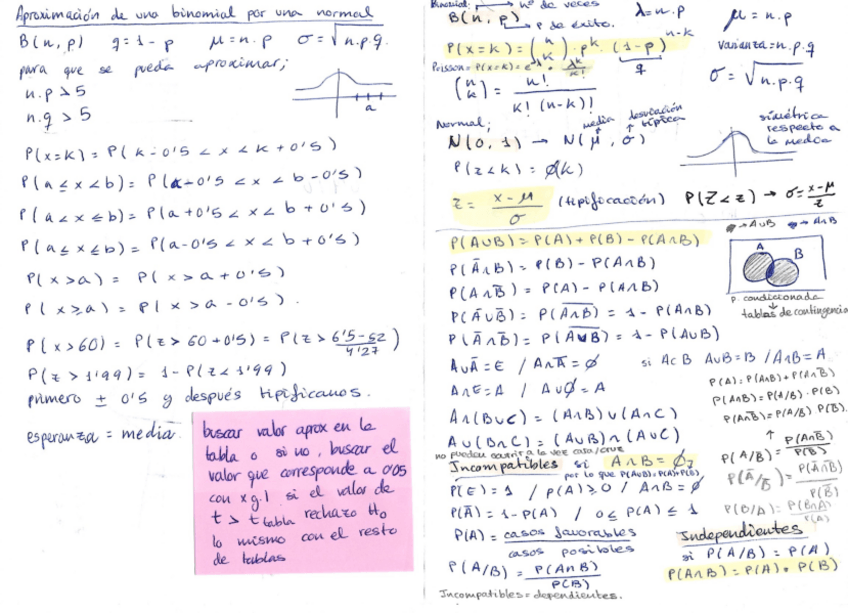 Aproximación de una binomial por una normal
B(n, p) q = 1 - p μ = n.p σ = √n.p.q.
para que se pueda aproximar;
n.p > 5
n.q > 5
a
P(x = k) = P(k - 0'5 < x < k + 0'5)
P(a ≤ x < b) = P(a - 0'5 < x < b - 0'5)
P(a < x ≤ b) = P(a + 0'5 < x < b + 0'5)
P(a ≤ x ≤ b) = P(a - 0'5 < x < b + 0'5)
P(x > a) = P(x > a + 0'5)
P(x ≥ a) = P(x > a - 0'5).
P(x > 60) = P(z > 60 + 0'5) = P(z > 6'5 - 52 / 4'27)
P(z > 1'99) = 1 - P(z < 1'99)
primero ± 0'5 y después tipificamos.
esperanza = media.
buscar valor aprox en la
tabla o si no, buscar el
valor que corresponde a 0'05
con x g.l si el valor de
t > t tabla rechazo H₀
lo mismo con el resto
de tablas
Binomial: nº de veces
B(n, p) p de éxito. λ = n.p μ = n.p
P(x = k) = (n k) . p^k . (1 - p)^n-k varianza = n.p.q
q
Poisson = P(x = k) = e^-λ . λ^k / k!
(n k) = n! / k! (n - k)! σ = √n.p.q
Normal; media desviación típica
N(0, 1) → N(μ, σ)
simétrica
respecto a
la media
P(z < k) = Ø(k)
z = x - μ / σ (tipificación) P(Z < z) → σ = x - μ / z
→ A∪B → A∩B
P(A∪B) = P(A) + P(B) - P(A∩B)
A B
P(Ā∩B) = P(B) - P(A∩B)
P(A∩B̄) = P(A) - P(A∩B)
p. condicionada
tablas de contingencia
P(Ā∪B̄) = P(A∩B)‾ = 1 - P(A∩B)
P(Ā∩B̄) = P(A∪B)‾ = 1 - P(A∪B)
A∪Ā = E / A∩Ā = Ø si A⊂B A∪B = B / A∩B = A
A∩E = A / A∪Ø = A
P(A) = P(A∩B) + P(A∩B̄)
P(A∩B) = P(A/B) . P(B)
P(A∩B̄) = P(A/B̄) P(B̄).
A∩(B∪C) = (A∩B)∪(A∩C)
A∪(B∩C) = (A∪B)∩(A∪C)
P(A/B̄) = P(A∩B̄) / P(B̄)
no pueden ocurrir a la vez cara/cruz
Incompatibles si A∩B = Ø
por lo que P(A∪B) = P(A) + P(B)
P(Ā/B̄) = P(Ā∩B̄) / P(B̄)
P(E) = 1 / p(A) ≥ 0 / A∩B = Ø
P(Ā) = 1 - P(A) / 0 ≤ P(A) ≤ 1
P(B/A) = P(B∩A) / P(A)
P(A) = casos favorables / casos posibles
Independientes
si P(A/B) = P(A)
P(A/B) = P(A∩B) / P(B)
P(A∩B) = P(A) . P(B)
Incompatibles = dependientes.